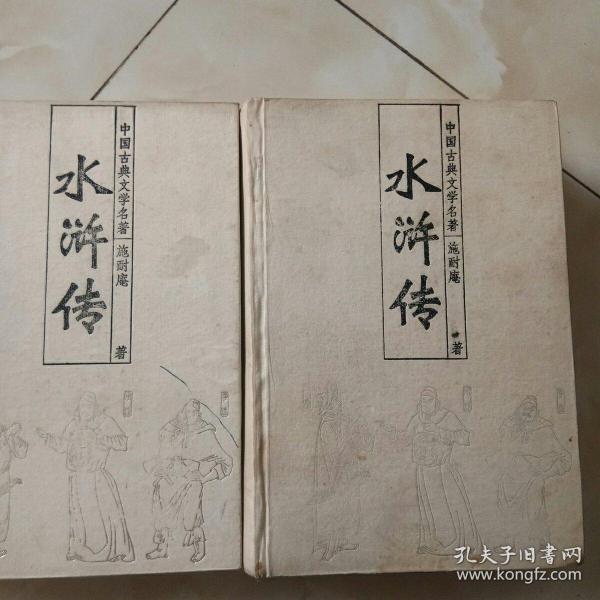 水浒传
中国古典文学名著
施耐庵
著
水浒传
中国古典文学名著
施耐庵
著
孔夫子旧书网
www.kongfz.com